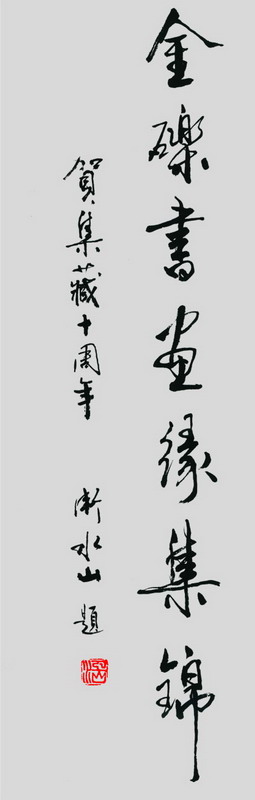 金砾書画缘集錦
賀集藏十周年
衡水山題